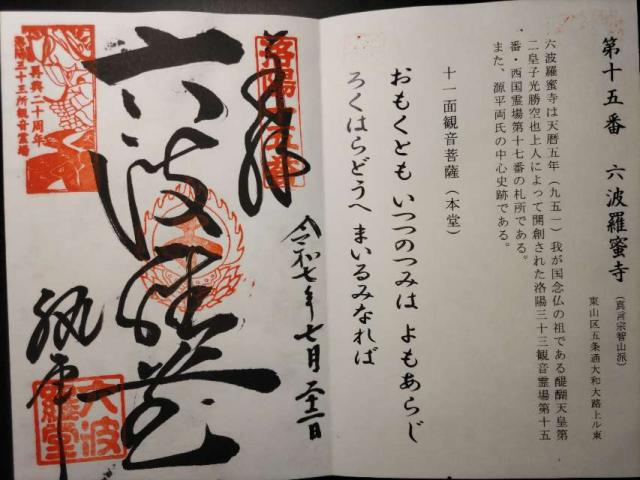 第十五番 六波羅蜜寺
(真言宗智山派)
東山区五条通大和大路上ル東
六波羅蜜寺は天暦五年(九五一)我が国念仏の祖である醍醐天皇第
二皇子光勝空也上人によって開創された洛陽三十三観音霊場第十五
番・西国霊場第十七番の札所である。
また、源平両氏の中心史跡である。
十一面観音菩薩(本堂)
おもくとも いつつのつみは よもあらじ
ろくはらどうへ まいるみなれば
奉拝
洛陽十五番
令和七年七月二十二日
六波羅堂
再興二十周年
洛陽三十三所観音霊場
六波
羅堂